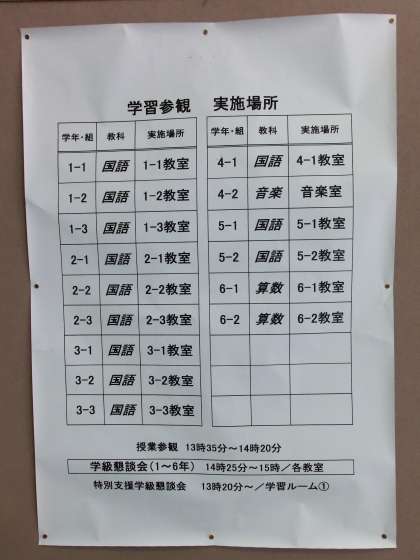 学習参観　実施場所
学年・組 教科 実施場所
1-1 国語 1-1教室
1-2 国語 1-2教室
1-3 国語 1-3教室
2-1 国語 2-1教室
2-2 国語 2-2教室
2-3 国語 2-3教室
3-1 国語 3-1教室
3-2 国語 3-2教室
3-3 国語 3-3教室
学年・組 教科 実施場所
4-1 国語 4-1教室
4-2 音楽 音楽室
5-1 国語 5-1教室
5-2 国語 5-2教室
6-1 算数 6-1教室
6-2 算数 6-2教室
授業参観 13時35分～14時20分
学級懇談会（1～6年） 14時25分～15時／各教室
特別支援学級懇談会 13時20分～／学習ルーム①